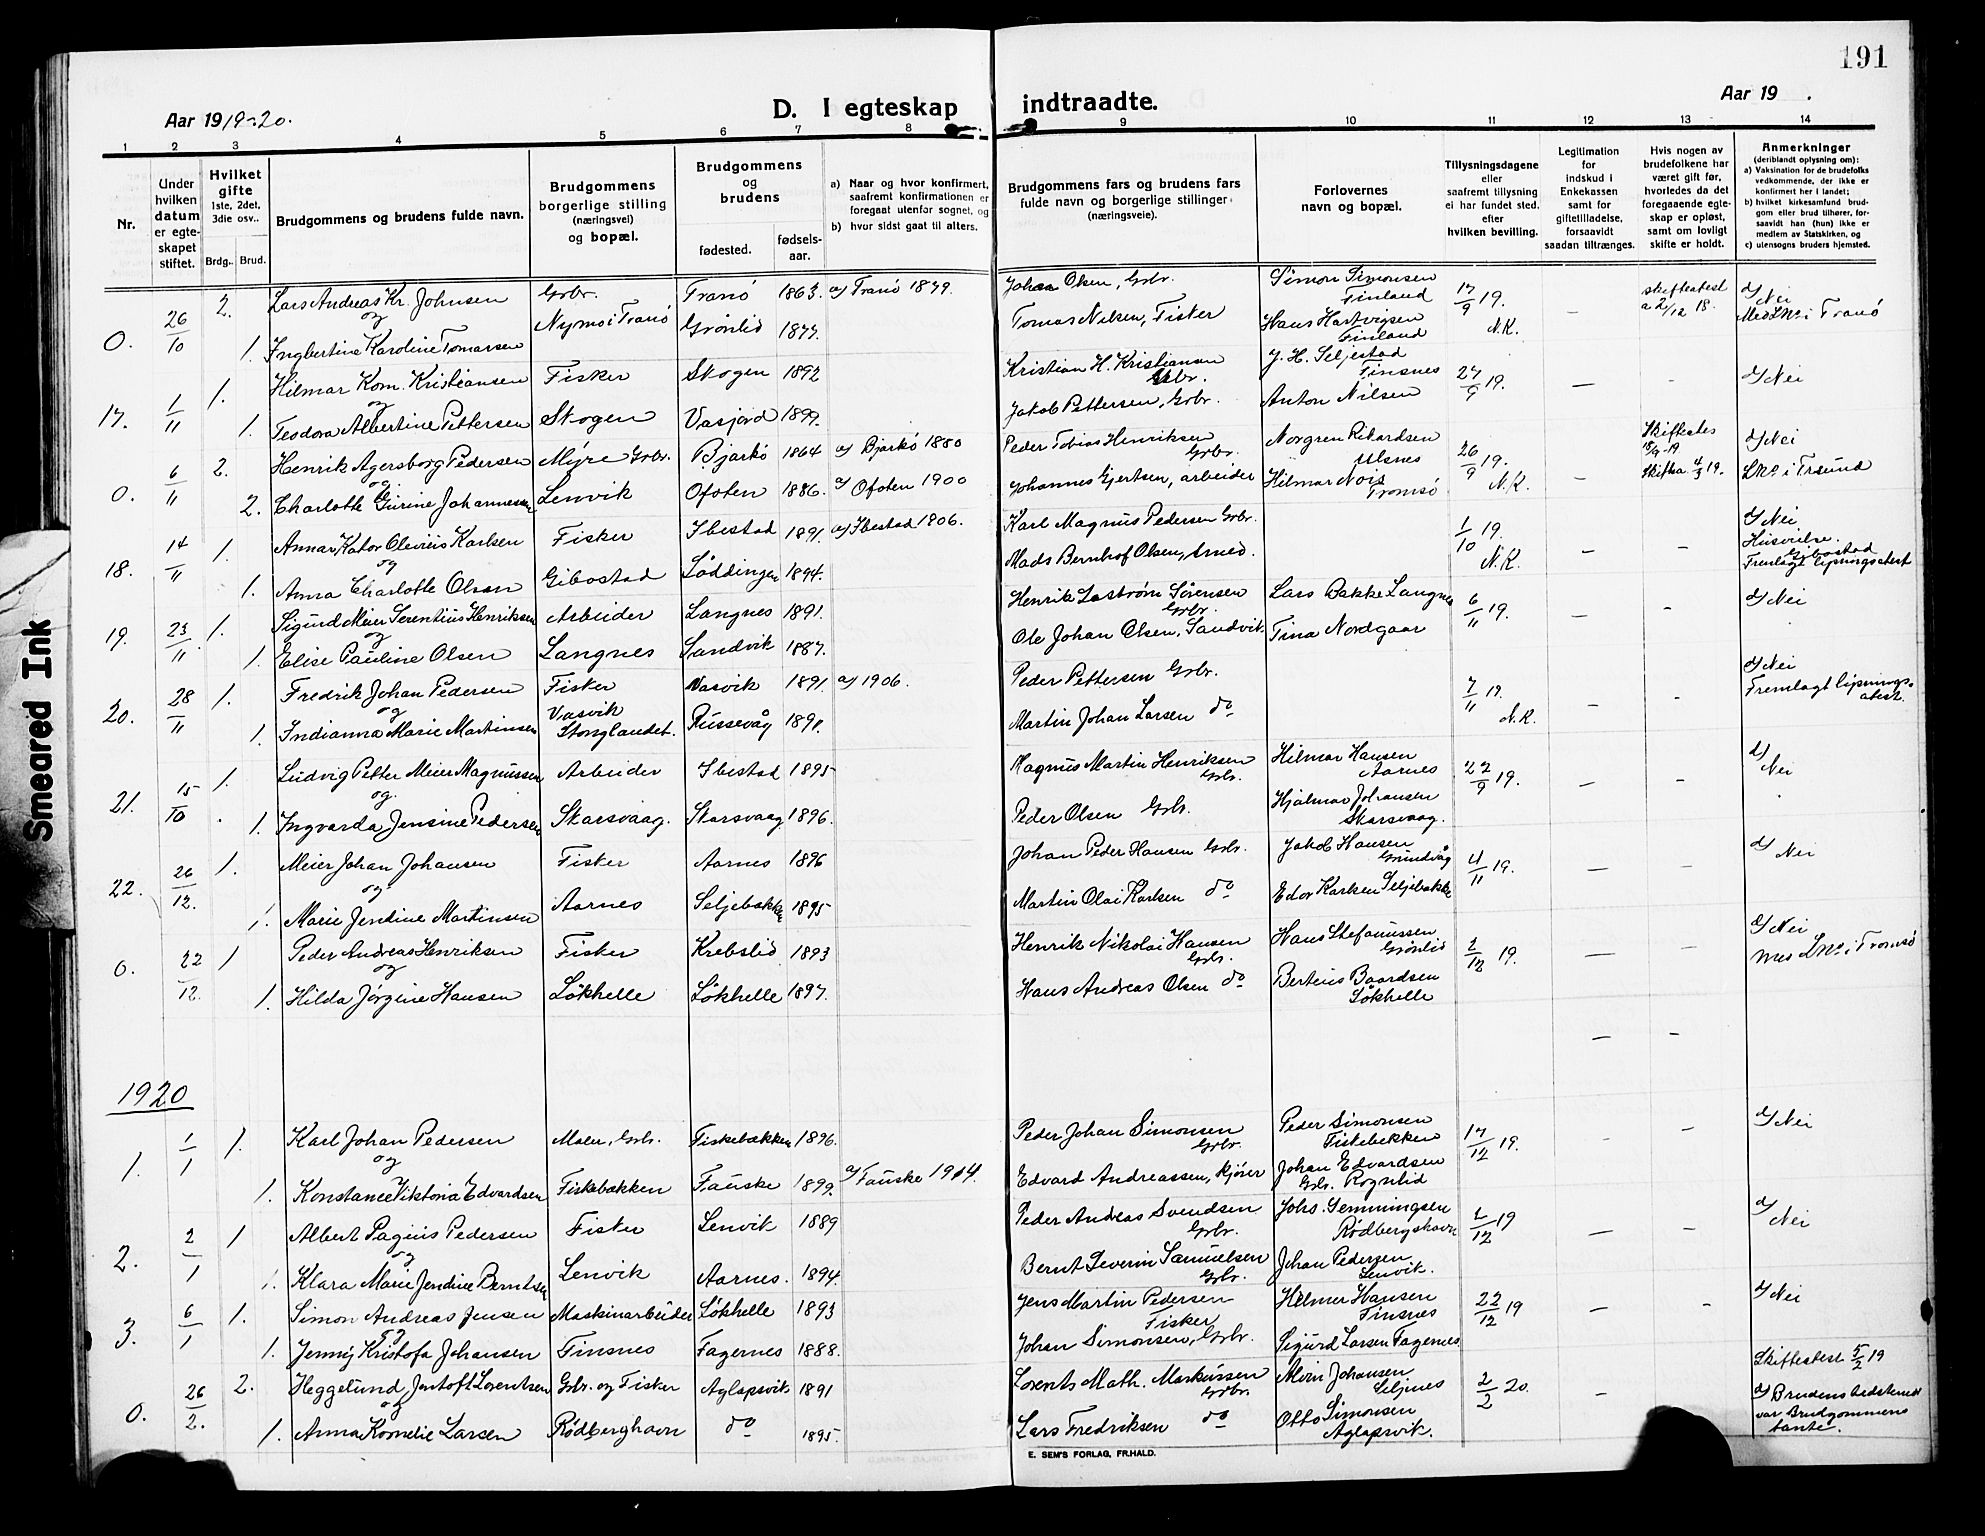 191
Aar 1919-20.
D. I egteskap indtraadte.
Aar 19 .
1 2 3 4 5 6 7 8 9 10 11 12 13 14
Nr.
Under hvilken datum er egteskapet stiftet.
Hvilket gifte 1ste, 2det, 3die osv..
Brdg.. Brud.
Brudgommens og brudens fulde navn.
Brudgommens borgerlige stilling (næringsvei) og bopæl.
Brudgommens og brudens
fødested. fødselsaar.
a) Naar og hvor konfirmert, saafremt konfirmationen er foregaat utenfor sognet, og
b) hvor sidst gaat til alters.
Brudgommens fars og brudens fars fulde navn og borgerlige stillinger (næringsveie).
Forlovernes navn og bopæl.
Tillysningsdagene eller saafremt tillysning ei har fundet sted. efter hvilken bevilling.
Legitimation for indskud i Enkekassen samt for giftetilladelse, forsaavidt saadan tiltrænges.
Hvis nogen av brudefolkene har været gift før, hvorledes da det foregaaende egteskap er opløst, samt om lovligt skifte er holdt.
Anmerkninger (deriblandt oplysning om):
a) Vaksination for de brudefolks vedkommende, der ikke er konfirmert her i landet;
b) hvilket kirkesamfund brudgom eller brud tilhører, forsaavidt han (hun) ikke er medlem av Statskirken, og
c) utensogns bruders hjemsted.
0. 26/10 2. Lars Andreas Kr. Johnsen Grbr. Tranö 1863. a) Tranö 1879. Johan Olsen, Grbr. Simon Simonsen Finland 17/9 19. N.K. — Skifteatest a 21/12 18. d) Nei
og
1. Ingbertine Karoline Tomassen Nymo i Tranö Grönlid 1877. Tomas Nilsen, Fisker Hans Hartvigsen Finland i Tranö
17. 1/11 1. Hilmar Kom. Kristiansen Fisker Skogen 1892 Kristian H. Kristiansen Grbr. J. H. Seljestad Finsnes 27/9 19. — - d) Nei
og
1. Teodora Albertine Pettersen Skogen Vasjord 1899. Jakob Pettersen, Grbr. Anton Nilsen
0. 6/11 2. Henrik Agersborg Pedersen Myre Grbr. Bjarkö 1864 a) Bjarkö 1880 Peder Tobias Henriksen Grbr. Norgren Rikardsen Ulsnes 26/9 19. N.K. — d) Nei
og
2. Charlotte Gurine Johannesen Lenvik Ofoten 1886. a) Ofoten 1900 Johannes Gjertsen, arbeider Hilmar Nois Tromsö
18. 14/11 1. Annar Kator Olevius Karlsen Fisker Ibestad 1891. a) Ibestad 1906. Karl Magnus Pedersen Grbr. 1/10 19. N.K. — — d) Nei
og
1. Anna Charlotte Olsen Gibostad Löddingen 1894. Mads Bernhof Olsen, Smed. Husvielse. Gibostad Fremlagt lysningsatest
19. 23/11. 1. Sigurd Meier Serentius Henriksen Arbeider Langnes 1891. Henrik Lastrøm Sörensen Grbr. Lars Bakke Langnes 6/11 19. d) Nei
og
1. Elise Pauline Olsen Langnes Sandvik 1887. Ole Johan Olsen, Sandvik. Tina Nordgaar
20. 28/11 1. Fredrik Johan Pedersen Fisker Vasvik 1891. a) 1906. Peder Pettersen Grbr. 7/11 19. N.K. — - d) Nei
og
1. Indianna Marie Martinsen Vasvik Stonglandet. Russevåg 1891. Martin Johan Larsen do Fremlagt lysningsatest.
21. 15/10 1. Ludvig Petter Meier Magnussen Arbeider Ibestad 1895 Magnus Martin Henriksen Grbr. Hilmar Hansen Aarnes 27/9 19. — — d) Nei
og
1. Ingvarda Jensine Pedersen Skarsvaag. Skarsvaag 1896. Peder Olsen Grbr. Hjalmar Johansen Skarsvaag.
22. 26/12. 1. Meier Johan Johansen Fisker Aarnes 1896 Johan Peder Hansen Grbr. Jakob Hansen Grundvåg 4/11 19. — — d) Nei
og
1. Marie Jendine Martinsen Aarnes Seljebakken 1895 Martin Olai Karlsen do Edor Karlsen Seljebakke
0. 22/12. 1 Peder Andreas Henriksen Fisker Krebslid 1893 Henrik Nikolai Hansen Grbr. Hans Stefanussen Grönlid 2/12 19. — — d) Nei
og
1. Hilda Jørgine Hansen Lökhelle Lökhelle 1897. Hans Andreas Olsen do Berteus Baardsen Lökhelle i Tromsö
— —
1920
1. 1/1 1. Karl Johan Pedersen Maler, Grbr. Fiskebakken 1896. Peder Johan Simonsen Grbr. Peder Simonsen Fiskebakken 17/12 19. - — d) Nei
og
1. Konstance Viktoria Edvardsen Fiskebakken Fauske 1899. a) Fauske 1914. Edvard Andreassen, kjører Johan Edvardsen Grbr. Rognlid
2. 2/1 1 Albert Pagius Pedersen Fisker Lenvik 1889 Peder Andreas Svendsen Grbr. Johs. Gemmingsen Rödbergshavn 2/12 19 — — d) Nei
og
1. Klara Marie Jendine Berntsen Lenvik Aarnes. 1894. Bernt Severin Samuelsen Grbr. Johan Pedersen Lenvik.
3. 6/1 1. Simon Andreas Jensen Maskinarbeider Lökhelle 1893 Jens Martin Pedersen Fisker Hilmer Hansen Finsnes 22/12 19 — - d) Nei
og
1. Jenny Kristofa Johansen Finsnes Fagernes 1888. Johan Simonsen, Grbr. Sigurd Larsen Fagernes.
0. 26/2. 2. Heggelund Jentoft Lorentsen Grbr. og Fisker Aglapsvik 1891 Lorents Math. Markussen Grbr. Johansen Seljnes 2/2 20. — Skifteatest 5/2 19
og
1. Anna Kornelie Larsen Rødberghavn do 1895. Lars Fredriksen do Otto Simonsen Aglapsvik. d) Brudens bedstemor var Brudgommens tante.
E. SEM'S FORLAG, FR.HALD.
Smeared Ink